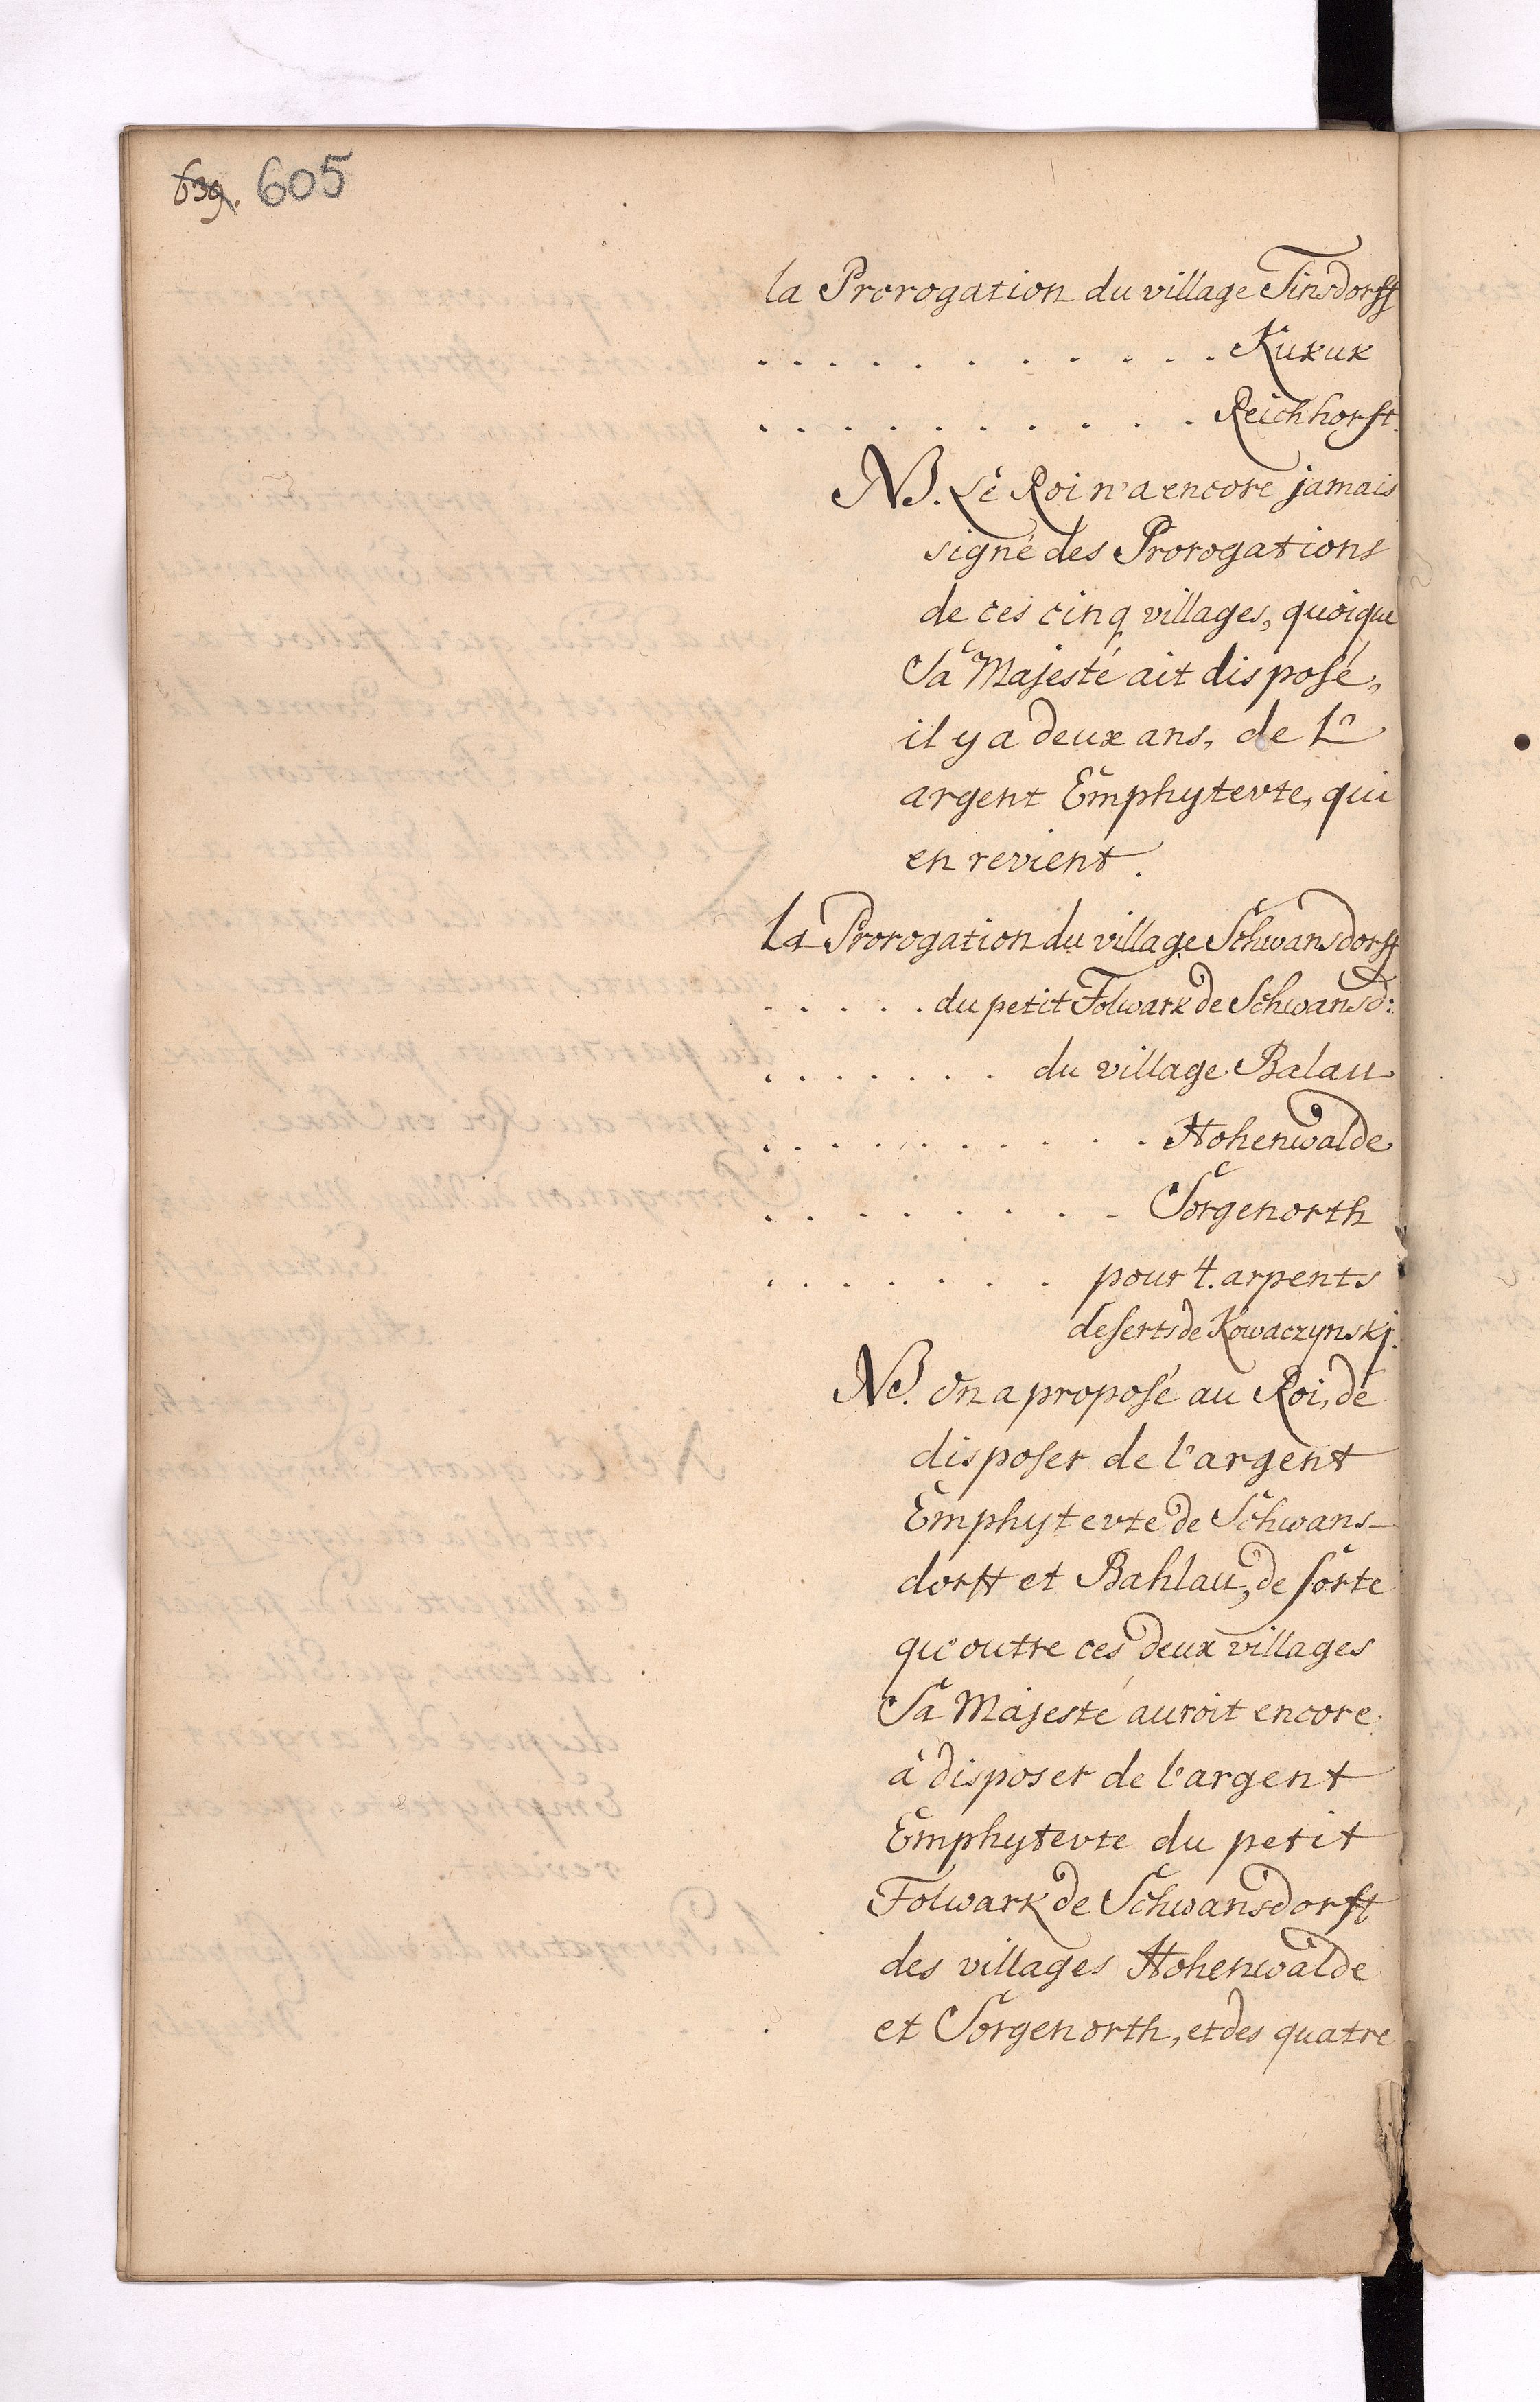 639. 605
la Prorogation du village Tinsdorff
. . . . . . . . . . . Kukuk
. . . . . . . . . . . Reichhorst.
NB. Le Roi n'a encore jamais
signé des Prorogations
de ces cinq villages, quoique
Sa Majesté ait disposé,
il y a deux ans, de L'
argent Emphytevte, qui
en revient.
La Prorogation du village Schwansdorff
. . . . . du petit Folwark de Schwansd:
. . . . . . . du village Balau
. . . . . . . . . . Hohenwalde
. . . . . . . . . Sorgenorth
. . . . . . . pour 4. arpents
deserts de Kowaczynskj.
NB. On a proposé au Roi, de
disposer de l'argent
Emphytevte de Schwans-
dorff et Bahlau, de sorte
qu'outre ces deux villages
Sa Majesté auroit encore
à disposer de l'argent
Emphytevte du petit
Folwark de Schwansdorff
des villages Hohenwalde
et Sorgenorth, et des quatre